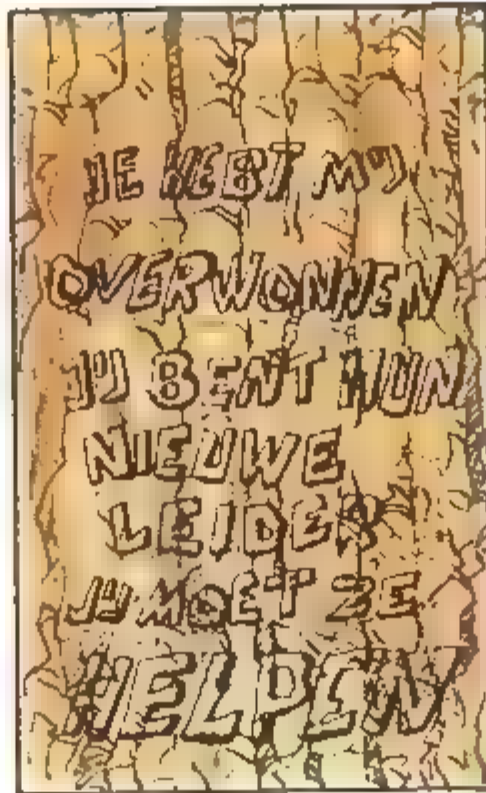 JE HEBT MIJ
OVERWONNEN
JIJ BENT HUN
NIEUWE
LEIDER
JIJ MOET ZE
HELPEN